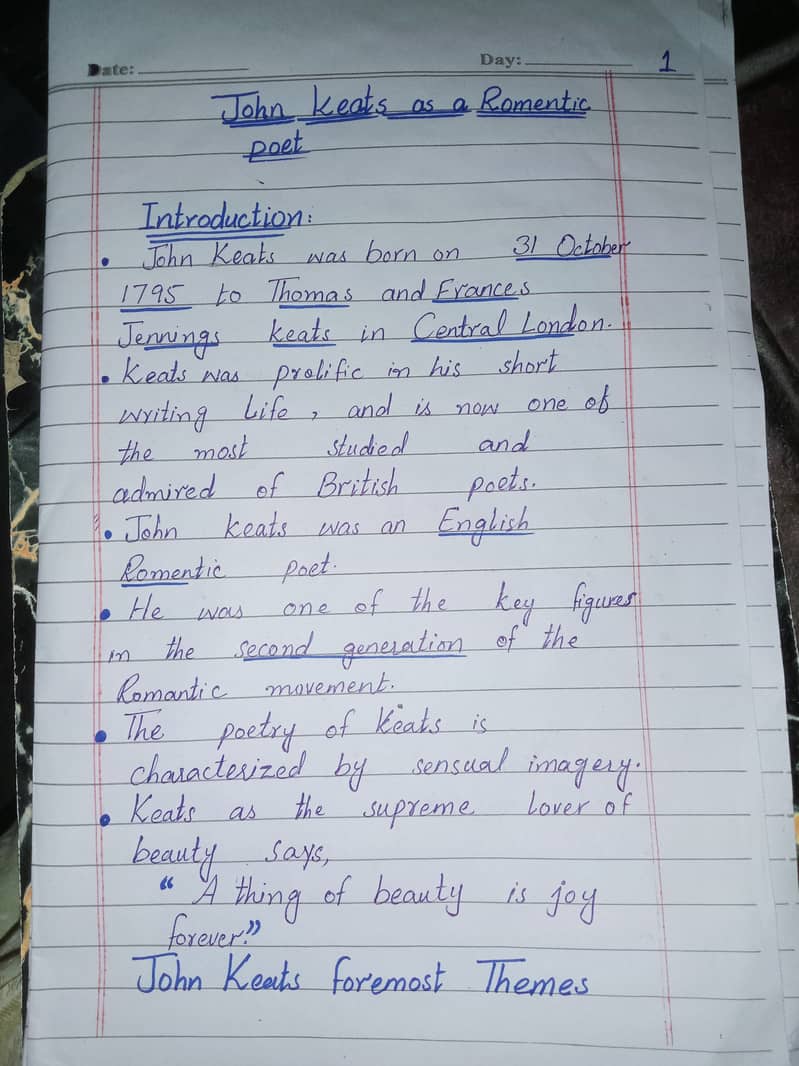 Date: Day: 1
John Keats as a Romentic
poet
Introduction:
• John Keats was born on 31 October
1795 to Thomas and Frances
Jennings keats in Central London.
• Keats was prolific in his short
writing Life, and is now one of
the most studied and
admired of British poets.
• John keats was an English
Romentic poet.
• He was one of the key figures
in the second generation of the
Romantic movement.
• The poetry of Keats is
characterized by sensual imagery.
• Keats as the supreme Lover of
beauty says,
“ A thing of beauty is joy
forever.”
John Keats foremost Themes